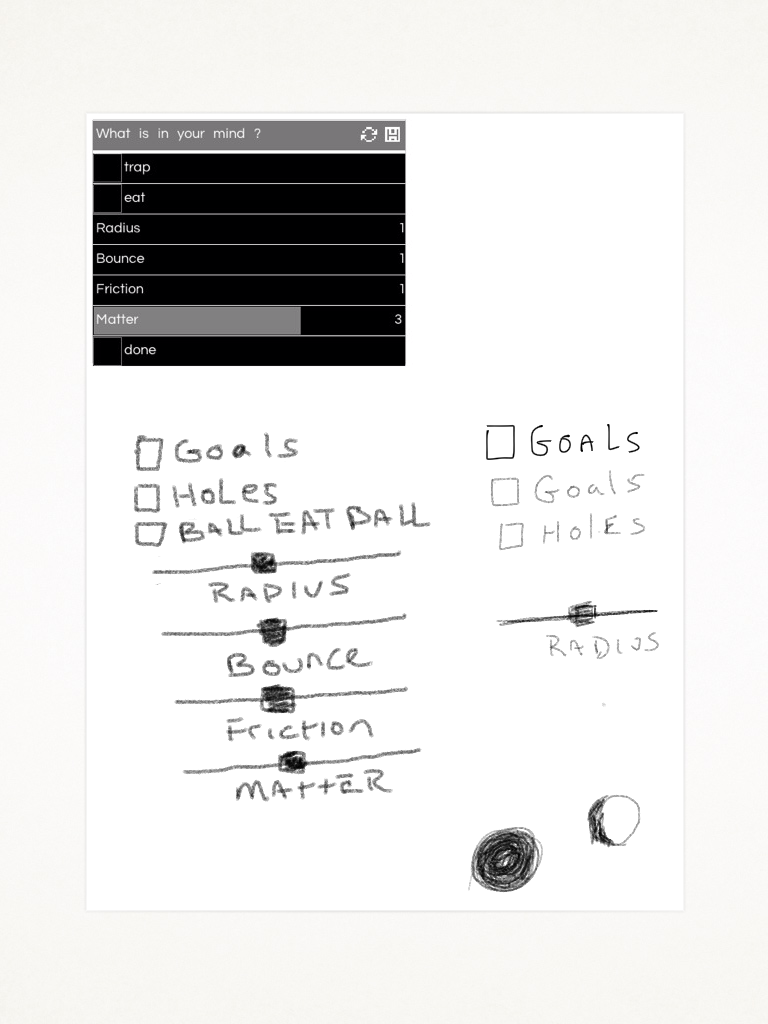 What is in your mind ?
trap
eat
Radius 1
Bounce 1
Friction 1
Matter 3
done
Goals
HoLes
BALL EAT BALL
RADIUS
BOUnce
Friction
MAttER
GOALS
Goals
HolEs
RADIUS